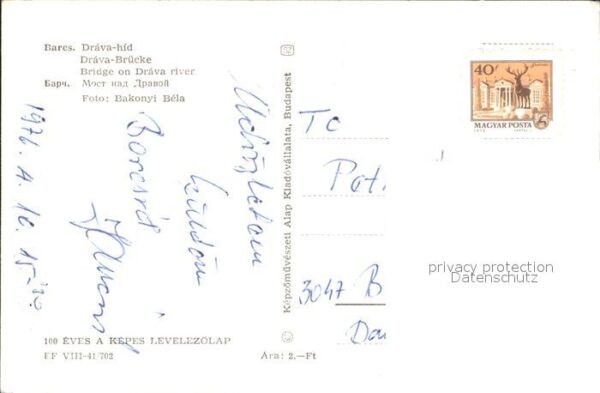 Barcs. Dráva-híd
Dráva-Brücke
Bridge on Dráva river
Барч. Мост над Дравой
Foto: Bakonyi Béla
Üdvözletem
küldöm
Barcsról
1976. 4. 16. 15-
100 ÉVES A KÉPES LEVELEZŐLAP
EF VIII-41/702
Ára: 2.—Ft
Képzőművészeti Alap Kiadóvállalata, Budapest
40f
MAGYAR POSTA
To
Pot
3047 B
Da
privacy protection
Datenschutz